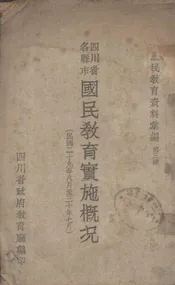 國民教育資料彙編
四川省
各縣市
國民教育實施概況
(民國二十九年八月至三十年七月)
四川省政府教育廳編印